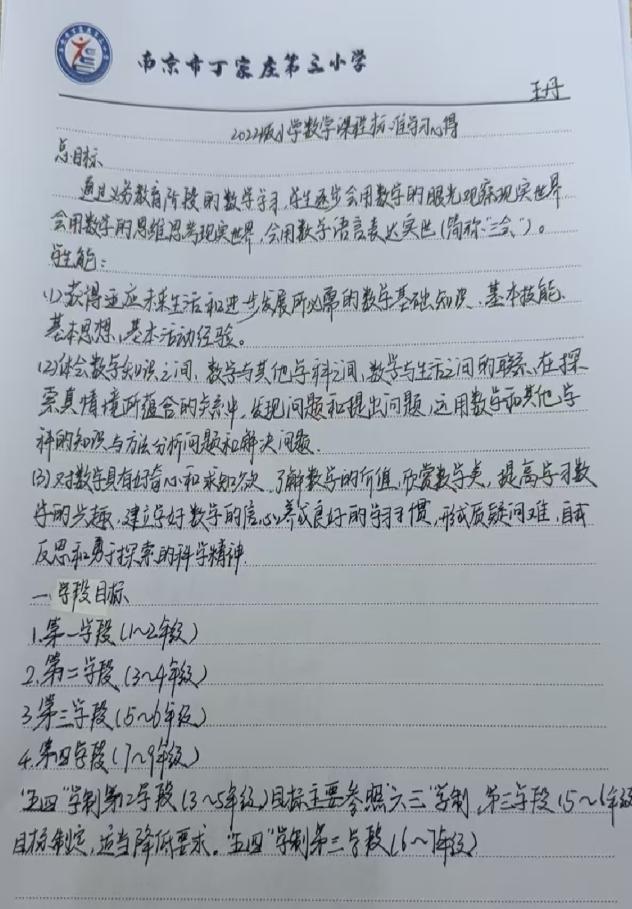 南京市丁家庄第三小学
王丹
2022版小学数学课程标准学习心得
总目标
通过义务教育阶段的数学学习,学生逐步会用数学的眼光观察现实世界
会用数学的思维思考现实世界,会用数学语言表达实世(简称"三会")。
学生能:
(1)获得适应未来生活和进步发展所必需的数学基础知识、基本技能、
基本思想、基本活动经验。
(2)体会数学知识之间,数学与其他学科之间,数学与生活之间的联系,在探
索真情境所蕴含的关系中,发现问题和提出问题,运用数学和其他学
科的知识与方法分析问题和解决问题.
(3)对数学具有好奇心和求知欲,了解数学的价值,欣赏数学美,提高学习数
学的兴趣,建立学好数学的信心,养成良好的学习习惯,形成质疑问难,自我
反思和勇于探索的科学精神.
一.学段目标
1.第一学段(1~2年级)
2.第二学段(3~4年级)
3.第三学段(5~6年级)
4.第四学段(7~9年级)
"五四"学制第2学段(3~5年级)目标主要参照"六三"学制,第三学段(5~6年级
目标制定,适当降低要求。"五四"学制第三学段(6~7年级)